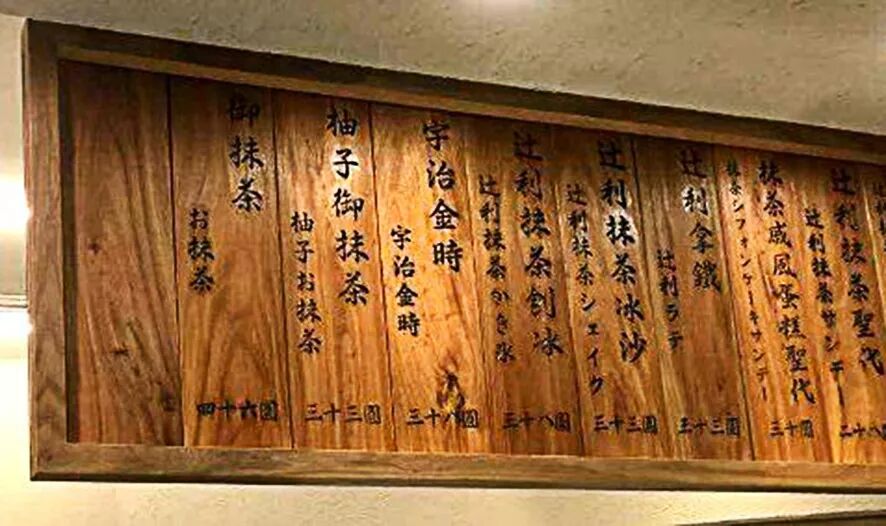 辻利抹茶聖代
辻利抹茶サンデー
二十八
抹茶戚風蛋糕聖代
抹茶シフォンケーキサンデー
三十圓
辻利拿鐵
辻利ラテ
三十三圓
辻利抹茶冰沙
辻利抹茶シェイク
三十三圓
辻利抹茶刨冰
辻利抹茶かき氷
三十八圓
宇治金時
宇治金時
三十八圓
柚子御抹茶
柚子お抹茶
三十三圓
御抹茶
お抹茶
四十六圓